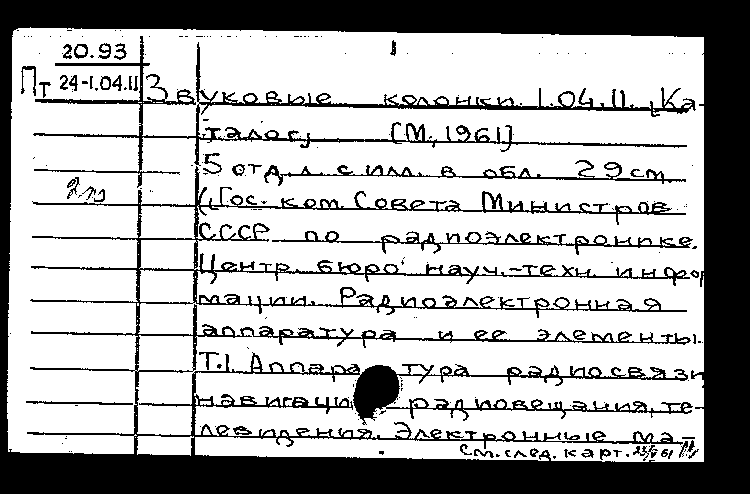 20.93
Пт 24-1.04.11
Звуковые колонки. 1.04.11. „Ка-
талог„ [М, 1961]
5 отд. л. с илл. в обл. 29 см.
(„Гос. ком. Совета Министров
СССР по радиоэлектронике.
Центр. бюро науч.-техн. инфор
мации. Радиоэлектронная
аппаратура и ее элементы.
Т.1. Аппаратура радиосвязи
навигаци радиовещания, те-
левидения. Электронные ма
См. след. карт.